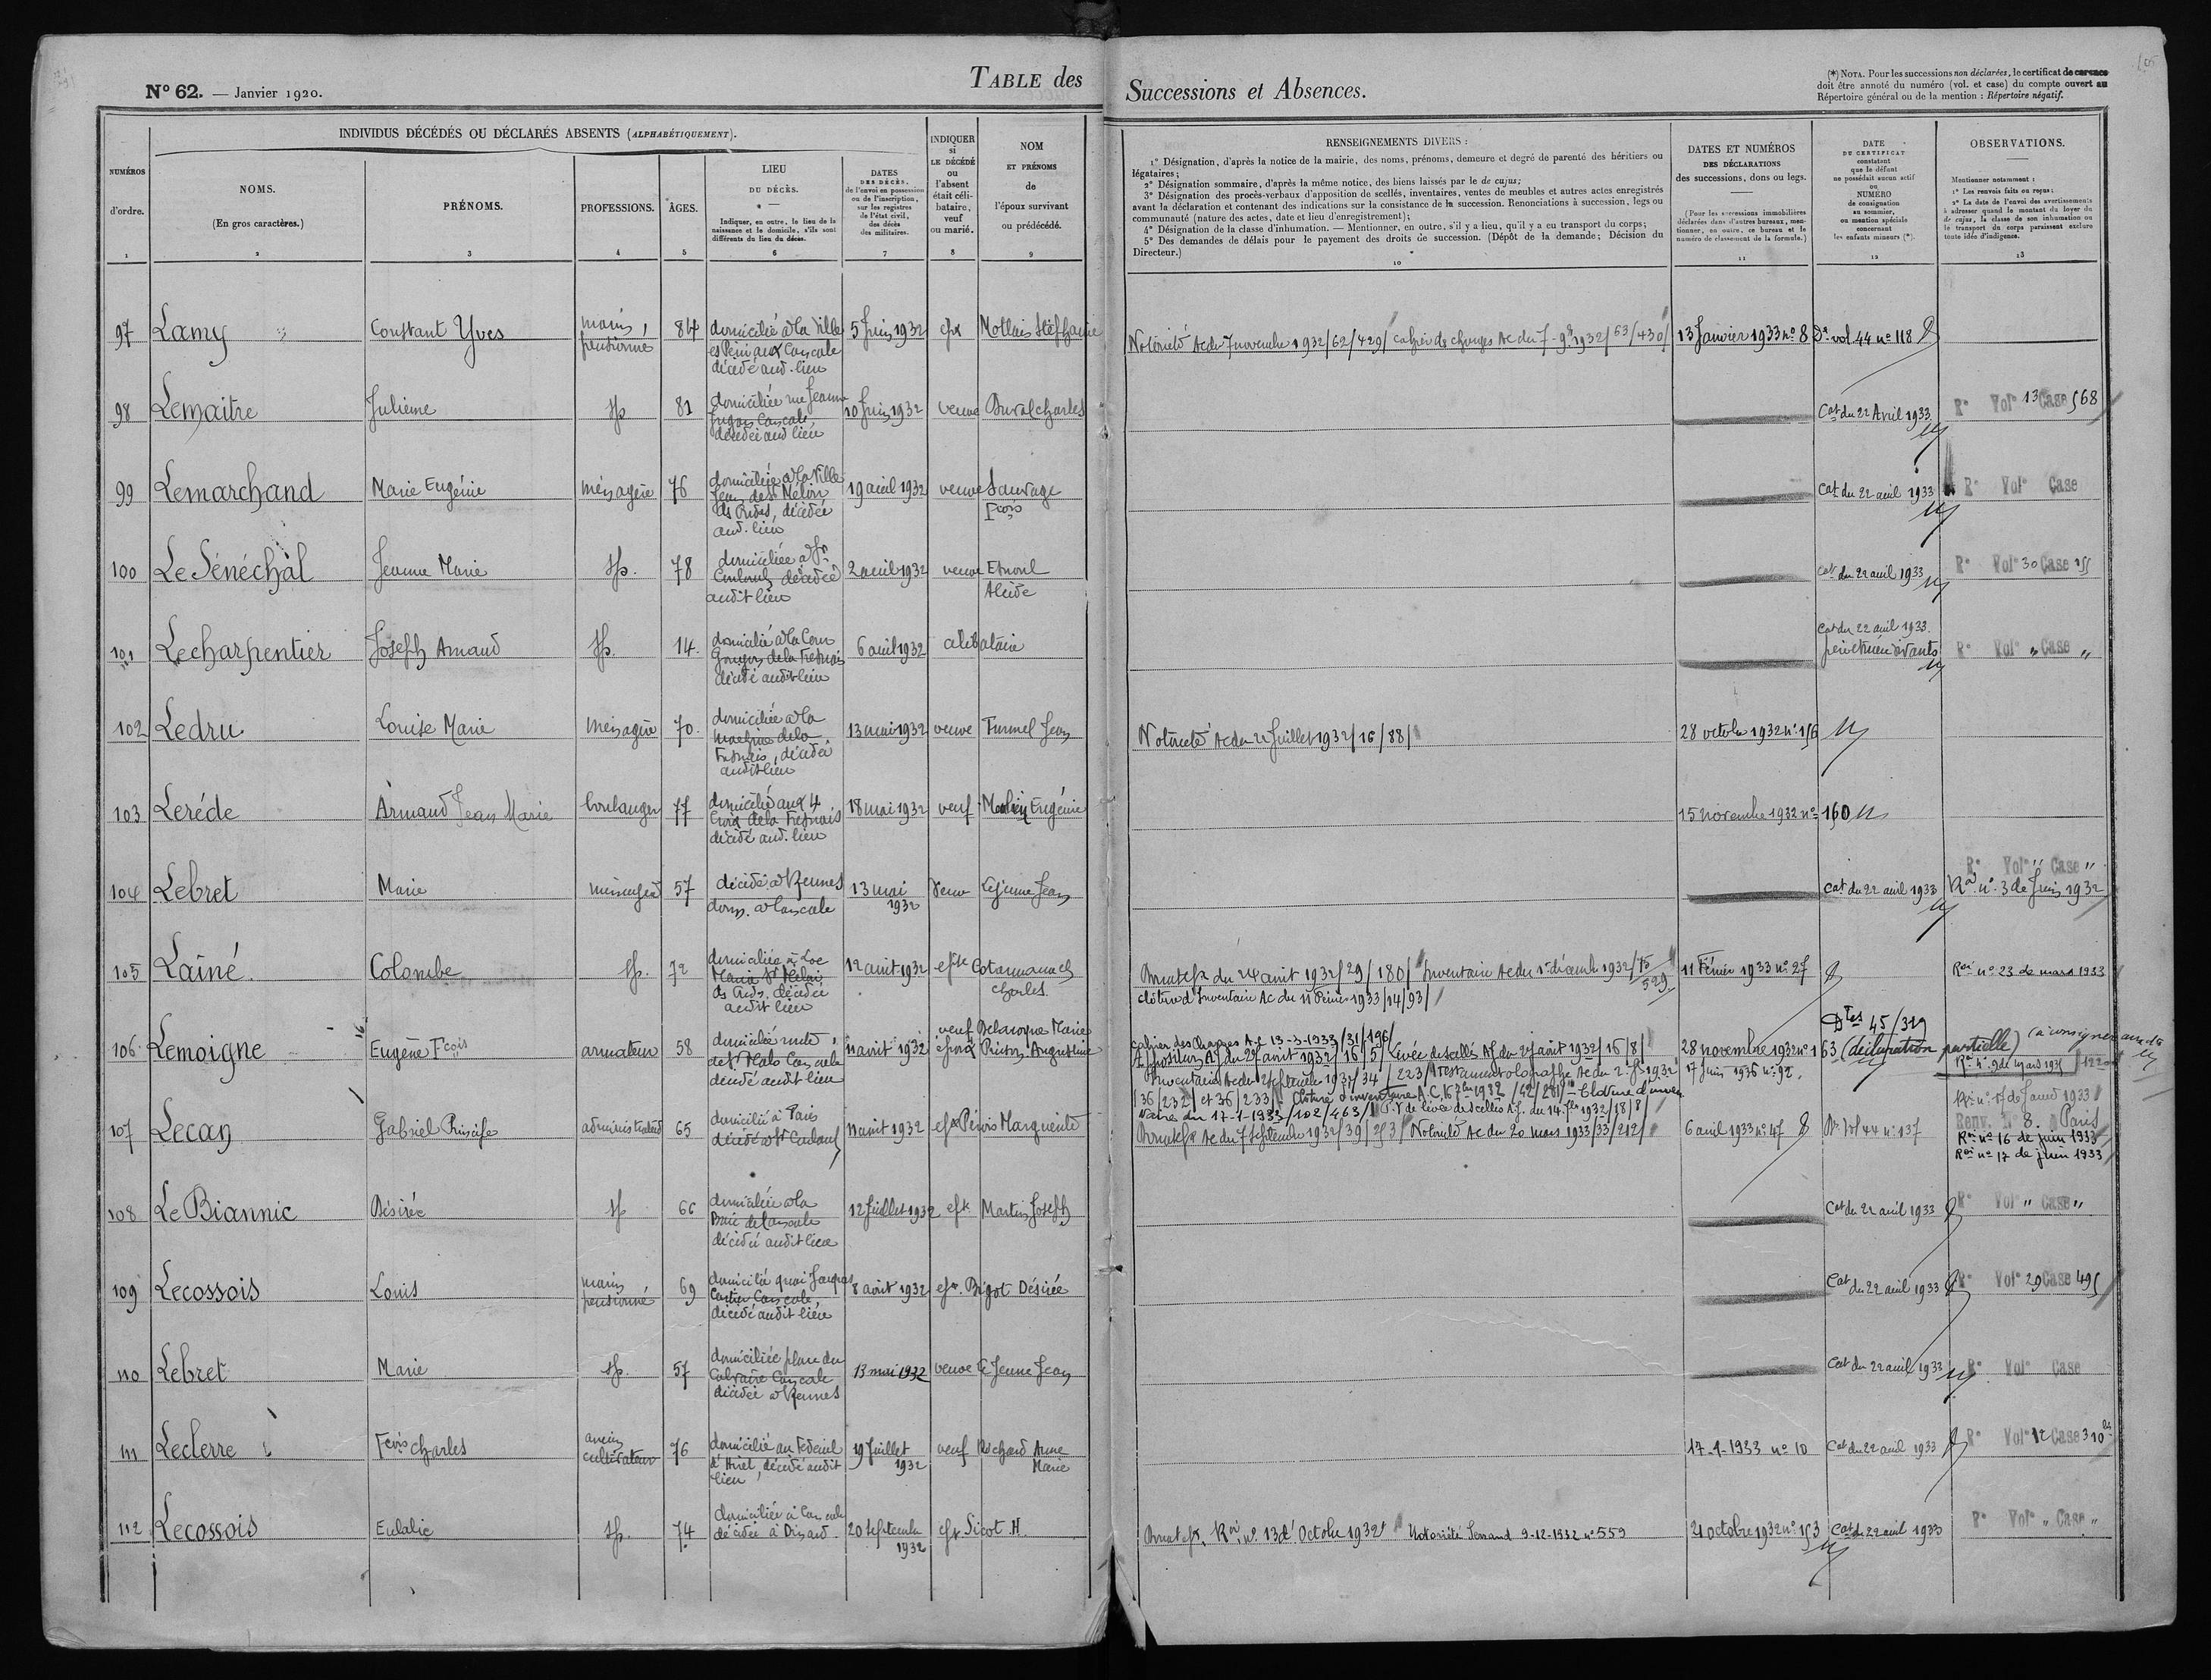 N° 62. — Janvier 1920.
TABLE des Successions et Absences.
(*) NOTA. Pour les successions non déclarées, le certificat de carence
doit être annoté du numéro (vol. et case) du compte ouvert au
Répertoire général ou de la mention : Répertoire négatif.
NUMÉROS
d'ordre.
1
INDIVIDUS DÉCÉDÉS OU DÉCLARÉS ABSENTS (ALPHABÉTIQUEMENT).
NOMS.
(En gros caractères.)
2
PRÉNOMS.
3
PROFESSIONS.
4
ÂGES.
5
LIEU
DU DÉCÈS.
Indiquer, en outre, le lieu de la
naissance et le domicile, s'ils sont
différents du lieu du décès.
6
DATES
DES DÉCÈS,
de l'envoi en possession
ou de l'inscription,
sur les registres
de l'état civil,
des décès
des militaires.
7
INDIQUER
si
LE DÉCÉDÉ
ou
l'absent
était céli-
bataire,
veuf
ou marié.
8
NOM
ET PRÉNOMS
de
l'époux survivant
ou prédécédé.
9
RENSEIGNEMENTS DIVERS :
1° Désignation, d'après la notice de la mairie, des noms, prénoms, demeure et degré de parenté des héritiers ou
légataires;
2° Désignation sommaire, d'après la même notice, des biens laissés par le de cujus;
3° Désignation des procès-verbaux d'apposition de scellés, inventaires, ventes de meubles et autres actes enregistrés
avant la déclaration et contenant des indications sur la consistance de la succession. Renonciations à succession, legs ou
communauté (nature des actes, date et lieu d'enregistrement);
4° Désignation de la classe d'inhumation. — Mentionner, en outre, s'il y a lieu, qu'il y a eu transport du corps;
5° Des demandes de délais pour le payement des droits de succession. (Dépôt de la demande; Décision du
Directeur.)
10
DATES ET NUMÉROS
DES DÉCLARATIONS
des successions, dons ou legs.
(Pour les successions immobilières
déclarées dans d'autres bureaux, men-
tionner, en outre, ce bureau et le
numéro de classement de la formule.)
11
DATE
DU CERTIFICAT
constatant
que le défunt
ne possédait aucun actif
ou
NUMÉRO
de consignation
au sommier,
ou mention spéciale
concernant
les enfants mineurs (*).
12
OBSERVATIONS.
Mentionner notamment :
1° Les renvois faits ou reçus;
2° La date de l'envoi des avertissements
à adresser quand le montant du loyer du
de cujus, la classe de son inhumation ou
le transport du corps paraissent exclure
toute idée d'indigence.
13
97 Lamy Constant Yves marin, pensionné 84 domicilié à la Ville
es Peniaux Cancale
décédé aud. lieu
5 Juin 1932 épx Mottais Stéphanie
Notoriété Ac du 7 novembre 1932/62/429/ Cahier de charges Ac du 7-9bre 1932/63/430/ 13 Janvier 1933 n° 8 Dn vol. 44 n° 118
98 Lemaitre Julienne sp. 81 domiciliée rue Jeanne
Jugan Cancale,
décédée aud lieu
10 Juin 1932 veuve Duval charles
Cat du 22 Avril 1933 R° Vol° 13 Case 568
99 Lemarchand Marie Eugénie ménagère 76 domiciliée à la Ville
Jean de St Meloir
des Ondes, décédée
aud. lieu
19 avril 1932 veuve Sauvage
Fçois
Cat du 22 avril 1933 R° Vol° Case
100 Le Sénéchal Jeanne Marie sp. 78 domiciliée à St
Coulomb, décédée
audit lieu
2 avril 1932 veuve Esnoul
Alcide
Cat du 22 avril 1933 R° Vol° 30 Case 255
101 Lecharpentier Joseph Amand sp. 14 domicilié à la Cour
de la Fresnais
décédé audit lieu
6 avril 1932 célibataire
Cat du 22 avril 1933.
père et mère vivants R° Vol° " Case "
102 Ledru Louise Marie ménagère 70 domiciliée à la
de la
Fresnais, décédée
audit lieu
13 mai 1932 veuve Turmel Jean
Notoriété Ac du 22 Juillet 1932/16/88/ 28 octobre 1932 n° 156
103 Leréde Armand Jean Marie boulanger 77 domicilié aux 4
Croix de la Fresnais
décédé aud. lieu
18 mai 1932 veuf Eugénie
15 novembre 1932 n° 160
104 Lebret Marie ménagère 57 décédée à Rennes
dom. à Cancale
13 mai
1932 veuve Lejeune Jean
Cat du 22 avril 1933 R° Vol° " Case "
Roi n° 3 de Juin 1932
105 Lainé Colombe sp. 72 domiciliée à Loc
Maria St Meloir
des Ondes, décédée
audit lieu
12 août 1932 épse Cotarmanach
charles
Brutesp. du 24 août 1932/29/180/ Inventaire Ac du 1er décembre 1932/75/529/
clôture d'Inventaire Ac du 11 Février 1933/14/93/
11 Février 1933 n° 27 Roi n° 23 de mars 1933
106 Lemoigne Eugène Fçois armateur 58 domicilié route
de St Malo Cancale
décédé audit lieu
11 août 1932 veuf Delaroque Marie
époux Pointon Augustine
cahier des charges A.C 13-3-1933/31/196/
Apposition AJ du 29 août 1932/16/5/ Levée de scellés AJ du 27 août 1932/16/8/
Inventaire Ac du 2 Septembre 1932/34/223/ Testament olographe Ac du 2-9bre 1932
/36/232/ et 36/233/ Cloture d'inventaire A.C. 16 7bre 1932/42/261/ Cloture d'inven
taire du 17-1-1933/102/463/ P.V de levée de scellés A.J. du 14 1932/18/8/
28 novembre 1932 n° 163 (déclaration partielle)
17 Juin 1936 n° 92.
Dtes 45/319
Roi n° 9 de mars 1935
107 Lecan Gabriel Principe administrateur 65 domicilié à Paris
décédé à St Coulomb
11 août 1932 épx Pénois Marguerite
Brutesp. Ac du 7 septembre 1932/39/253/ Notoriété Ac du 20 mars 1933/33/212/
6 avril 1933 n° 47 Dn Vol 44 n° 137
Renv. N° 8. à Paris
Roi n° 16 de juin 1933
Roi n° 17 de juin 1933
108 Le Biannic Désirée sp 66 domiciliée à la
Baie de Cancale
décédée audit lieu
12 Juillet 1932 épse Martin Joseph
Cat du 22 avril 1933 R° Vol° " Case "
109 Lecossois Louis marin
pensionné 69 domicilié quai Jacques
Cartier Cancale,
décédé audit lieu
8 août 1932 épx. Bigot Désirée
Cat du 22 avril 1933 R° Vol° 29 Case 495
110 Lebret Marie sp. 57 domiciliée place du
Calvaire Cancale
décédée à Rennes
13 mai 1932 veuve Le Jeune Jean
Cat du 22 avril 1933 R° Vol° Case
111 Leclerre Fçois charles ancien
cultivateur 76 domicilié au
d'Hirel, décédé audit
lieu
19 Juillet
1932 veuf Richard Anne
Marie
17-1-1933 n° 10 Cat du 22 avril 1933 R° Vol° 12 Case 310 bis
112 Lecossois Eulalie sp. 74 domiciliée à Cancale
décédée à Dinard
20 septembre
1932 épse Sicot H.
Brutesp. Roi n° 13 d'Octobre 1932 Notoriété 9-12-1932 n° 559 21 octobre 1932 n° 153 Cat du 22 avril 1933 R° Vol° " Case "